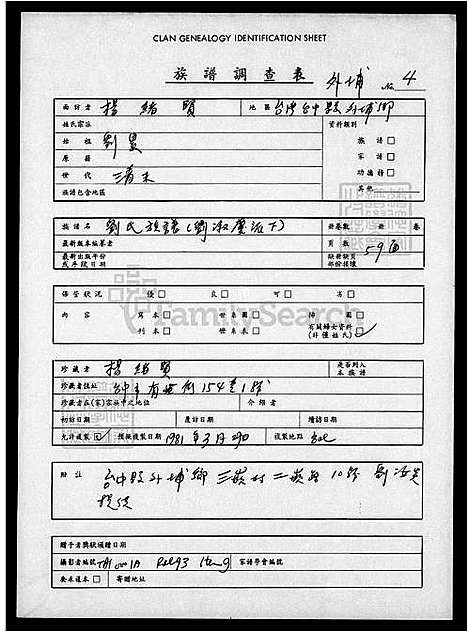 CLAN GENEALOGY IDENTIFICATION SHEET
族譜調查表 外埔 No. 4
面訪者 楊緒賢 地區 台灣台中縣外埔鄉
姓氏宗派 資料類別
始祖 劉 族譜
原籍 家譜
世代 清末 功德譜
族譜包含地區 其他
族譜名 劉氏族譜(劉淑慶派下) 冊卷數 冊 卷
最新版本編著者 頁數 59面
最新出版年份或序跋日期 缺冊缺頁部份損壞
保管狀況 優 良 可 劣
內容 寫本 世系圖 修圖 有關婦女資料
刊本 世系表 (非僅姓氏)
FamilySearch
珍藏者 楊緒賢 是否列入本族譜
珍藏者住址 台中市 154巷1號
珍藏者在(家)宗族中之地位 介紹者
初訪日期 座訪日期 續訪日期
允許複製 預擬複製日期 1981年3月29日 複製地點
附註 台中縣外埔鄉三崁村二崁路10號 劉
提供
贈予者獎狀頒贈日期
攝影者編號 家譜學會編號
要求複本 寄贈地址